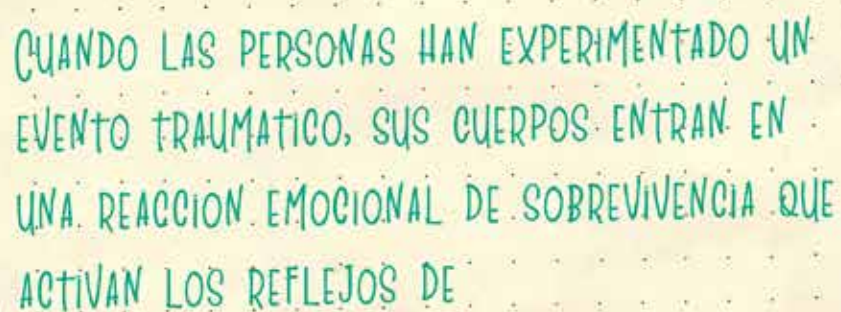 CUANDO LAS PERSONAS HAN EXPERIMENTADO UN
EVENTO TRAUMATICO, SUS CUERPOS ENTRAN EN
UNA REACCION EMOCIONAL DE SOBREVIVENCIA QUE
ACTIVAN LOS REFLEJOS DE